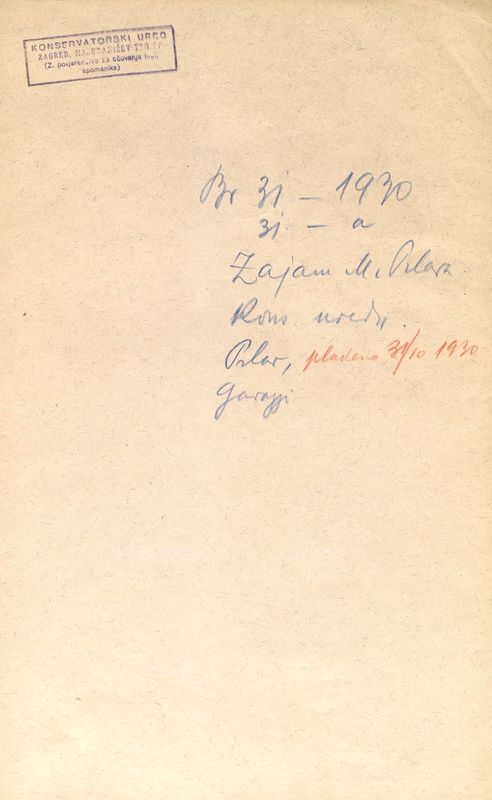 KONSERVATORSKI URED
ZAGREB, MAŽURANIĆEV TRG
(Z. povjerenstvo za očuvanje
spomenika)
Br 31 – 1930
31 – a
Zajam M. Pilara
Kons uredu
Pilar, plaćeno 31/10 1930